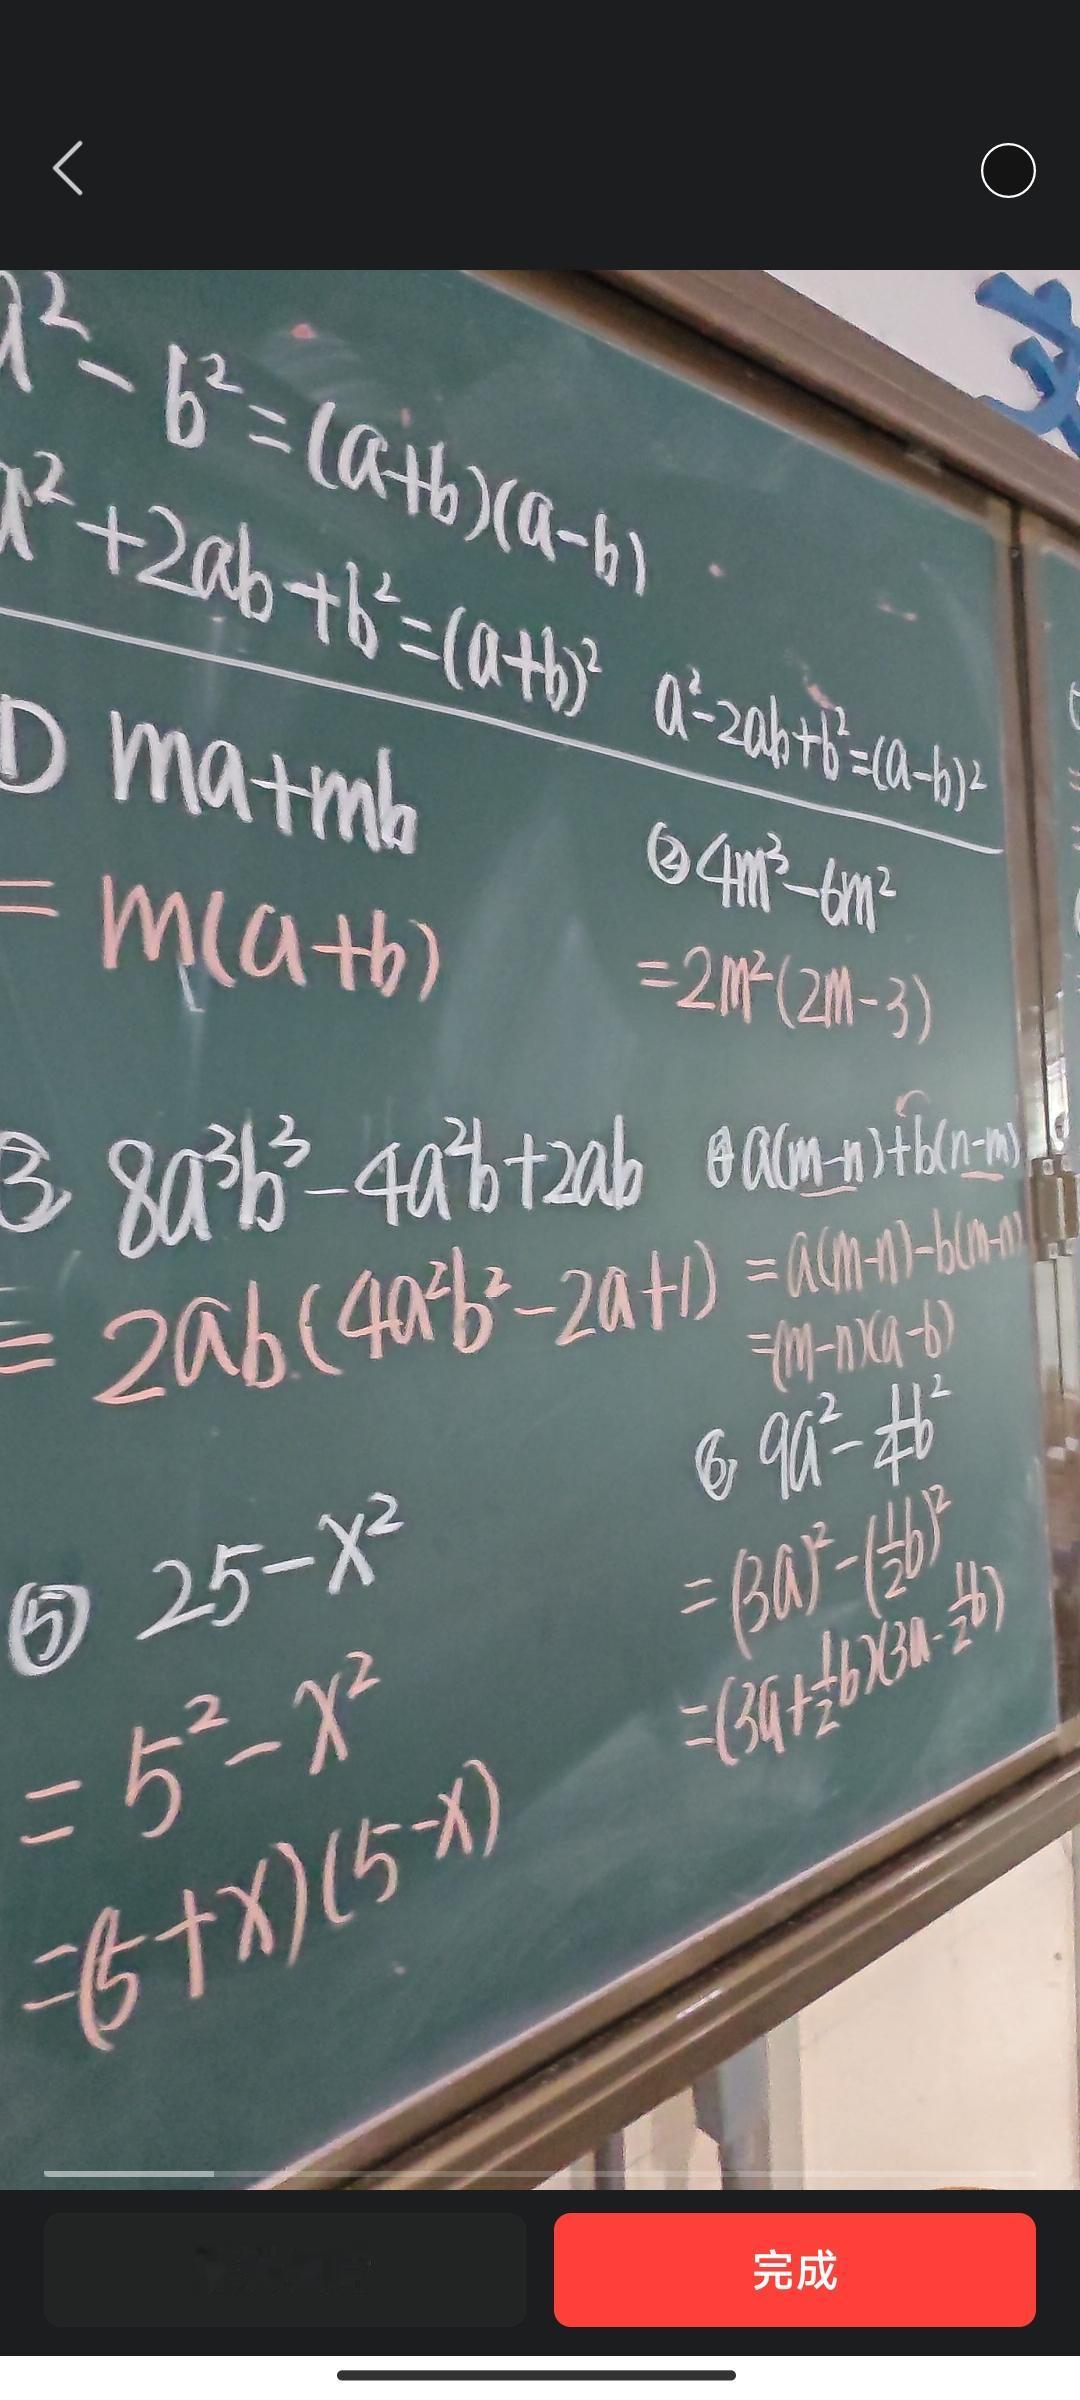 a² - b² = (a+b)(a-b)
a² + 2ab + b² = (a+b)² a²-2ab+b²=(a-b)²
① ma+mb
= m(a+b)
② 4m³-6m²
=2m²(2m-3)
③ 8a³b³-4a²b+2ab
= 2ab(4a²b²-2a+1)
④ a(m-n)+b(n-m)
=a(m-n)-b(m-n)
=(m-n)(a-b)
⑤ 25-x²
= 5²-x²
=(5+x)(5-x)
⑥ 9a²-¼b²
=(3a)²-(½b)²
=(3a+½b)(3a-½b)
完成